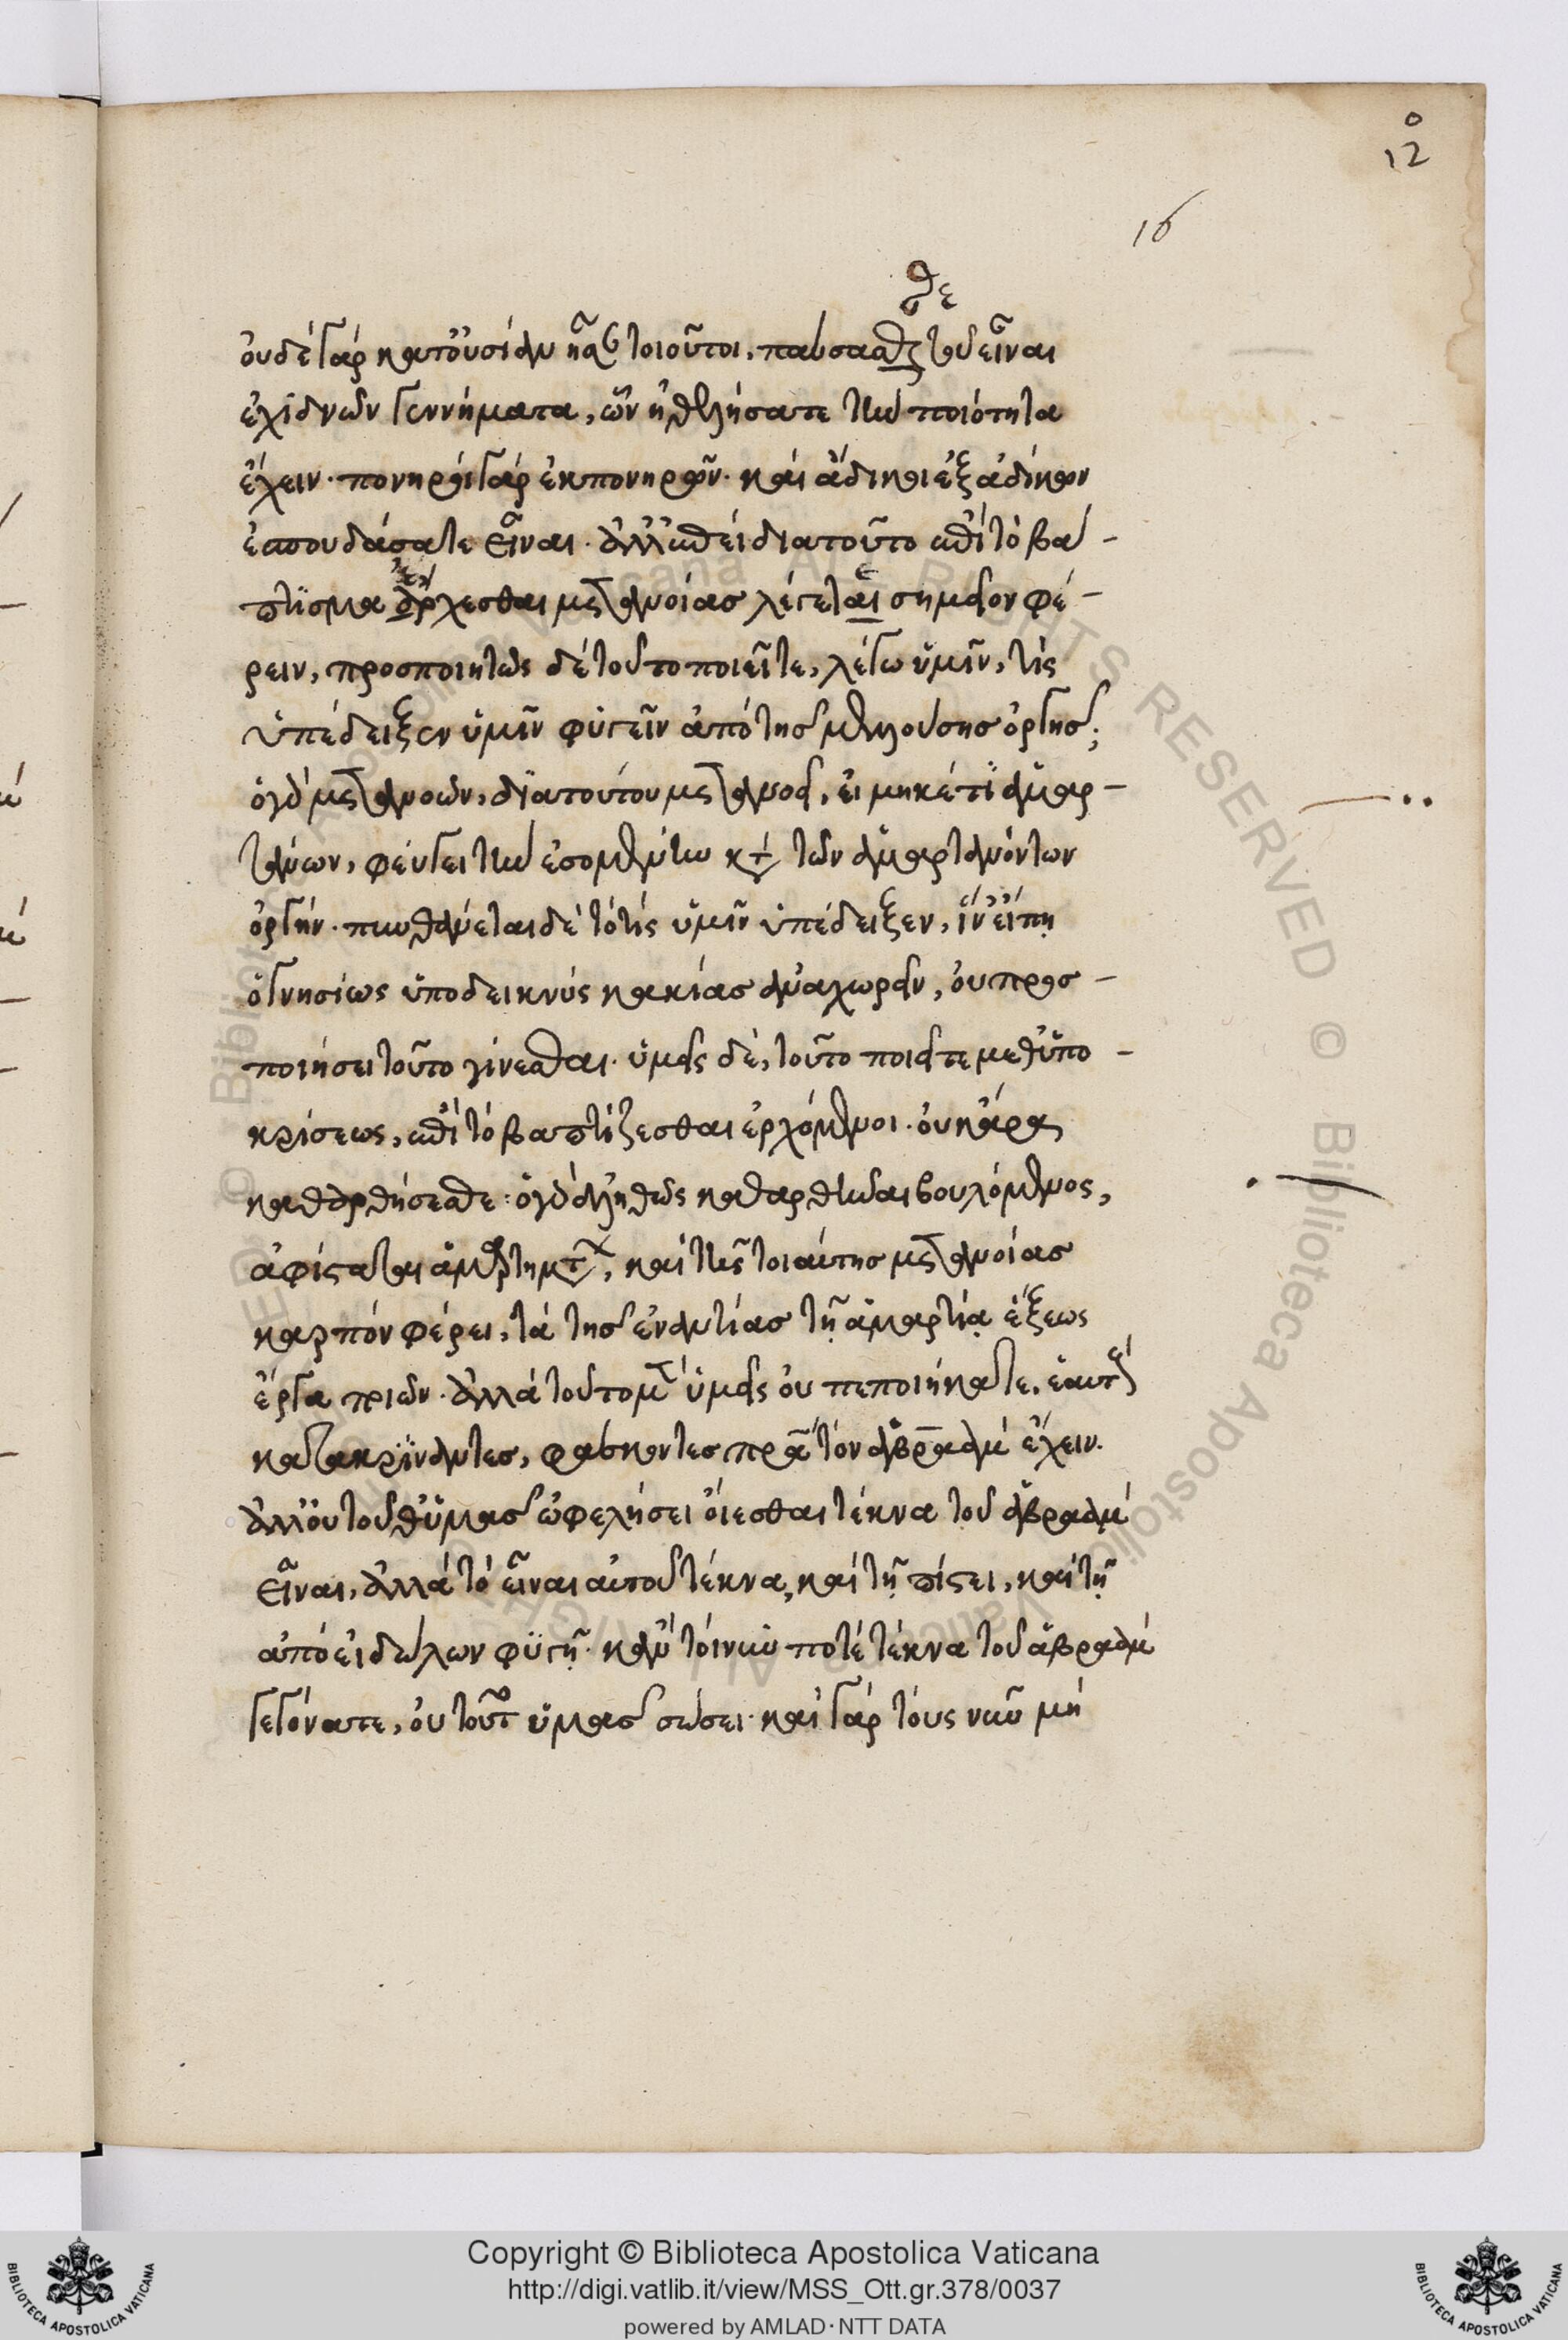 12
16
σθε
οὐδὲ γὰρ κατ' οὐσίαν ἦτε τοιοῦτοι. παύσασθαι τοῦ εἶναι
ἐχιδνῶν γεννήματα, ὧν ἠθελήσατε τὴν ποιότητα
ἔχειν· πονηροὶ γὰρ ἐκ πονηρῶν· καὶ ἄδικοι ἐξ ἀδίκων
ἐσπουδάσατε εἶναι· ἀλλ' ἐπεὶ διὰ τοῦτο ἐπὶ τὸ βά-
πτισμα ἔρχεσθαι μετανοίας λέγεται σημεῖον φέ-
ρειν, προσποιητῶς δὲ τοῦτο ποιεῖτε, λέγω ὑμῖν, τίς
ὑπέδειξεν ὑμῖν φυγεῖν ἀπὸ τῆς μελλούσης ὀργῆς;
ὁ γὰρ μετανοῶν, διὰ τούτου μετανοεῖ, εἰ μηκέτι ἁμαρ-
τάνων, φεύγει τὴν ἐσομένην κατὰ τῶν ἁμαρτανόντων
ὀργήν· πυνθάνεται δὲ τὸ τίς ὑμῖν ὑπέδειξεν, ἵν' εἴπῃ
ὁ γνησίως ὑποδεικνὺς κακίας ἀναχωρεῖν, οὐ προσ-
ποιήσει τοῦτο γίνεσθαι· ὑμεῖς δὲ, τοῦτο ποιεῖτε μεθ' ὑπο-
κρίσεως, ἐπὶ τὸ βαπτίζεσθαι ἐρχόμενοι· οὐκ ἄρα
καθαρθήσεσθε· ὁ γὰρ ἀληθῶς καθαρθῆναι βουλόμενος,
ἀφίσταται ἁμαρτημάτων, καὶ τῆς τοιαύτης μετανοίας
καρπὸν φέρει, τὰ τῆς ἐναντίας τῇ ἁμαρτίᾳ ἕξεως
ἔργα ποιῶν· ἀλλὰ τοῦτο μὲν ὑμεῖς οὐ πεποιήκατε, ἑαυτοὺς
κατακρίναντες, φάσκοντες πατέρα τὸν ἀβραὰμ ἔχειν.
ἀλλ' οὐ τοῦθ' ὑμᾶς ὠφελήσει οἴεσθαι τέκνα τοῦ ἀβραὰμ
εἶναι, ἀλλὰ τὸ εἶναι αὐτοῦ τέκνα, καὶ τῇ πίστει, καὶ τῇ
ἀπὸ εἰδώλων φυγῇ· κἂν τοίνυν ποτὲ τέκνα τοῦ ἀβραὰμ
γεγόνατε, οὐ τοῦτο ὑμᾶς σώσει· καὶ γὰρ τοὺς νῦν μὴ
Copyright © Biblioteca Apostolica Vaticana
http://digi.vatlib.it/view/MSS_Ott.gr.378/0037
powered by AMLAD·NTT DATA